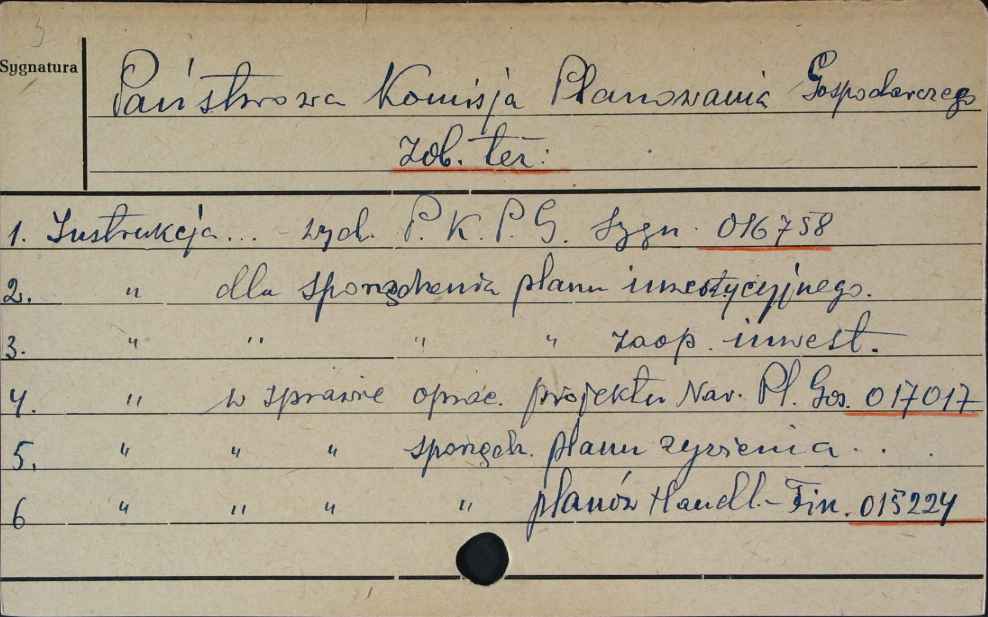 3
Sygnatura
Państwowa Komisja Planowania Gospodarczego
Zob. też:
1. Instrukcja... wyd. P. K. P. G. Sygn. 016758
2. " dla sporządzenia planu inwestycyjnego.
3. " " " " zaop. inwest.
4. " w sprawie oprac. projektu Nar. Pl. Gos. 017017
5. " " " sporządz. planu żywienia . . .
6 " " " " planów Handl.-Fin. 015224